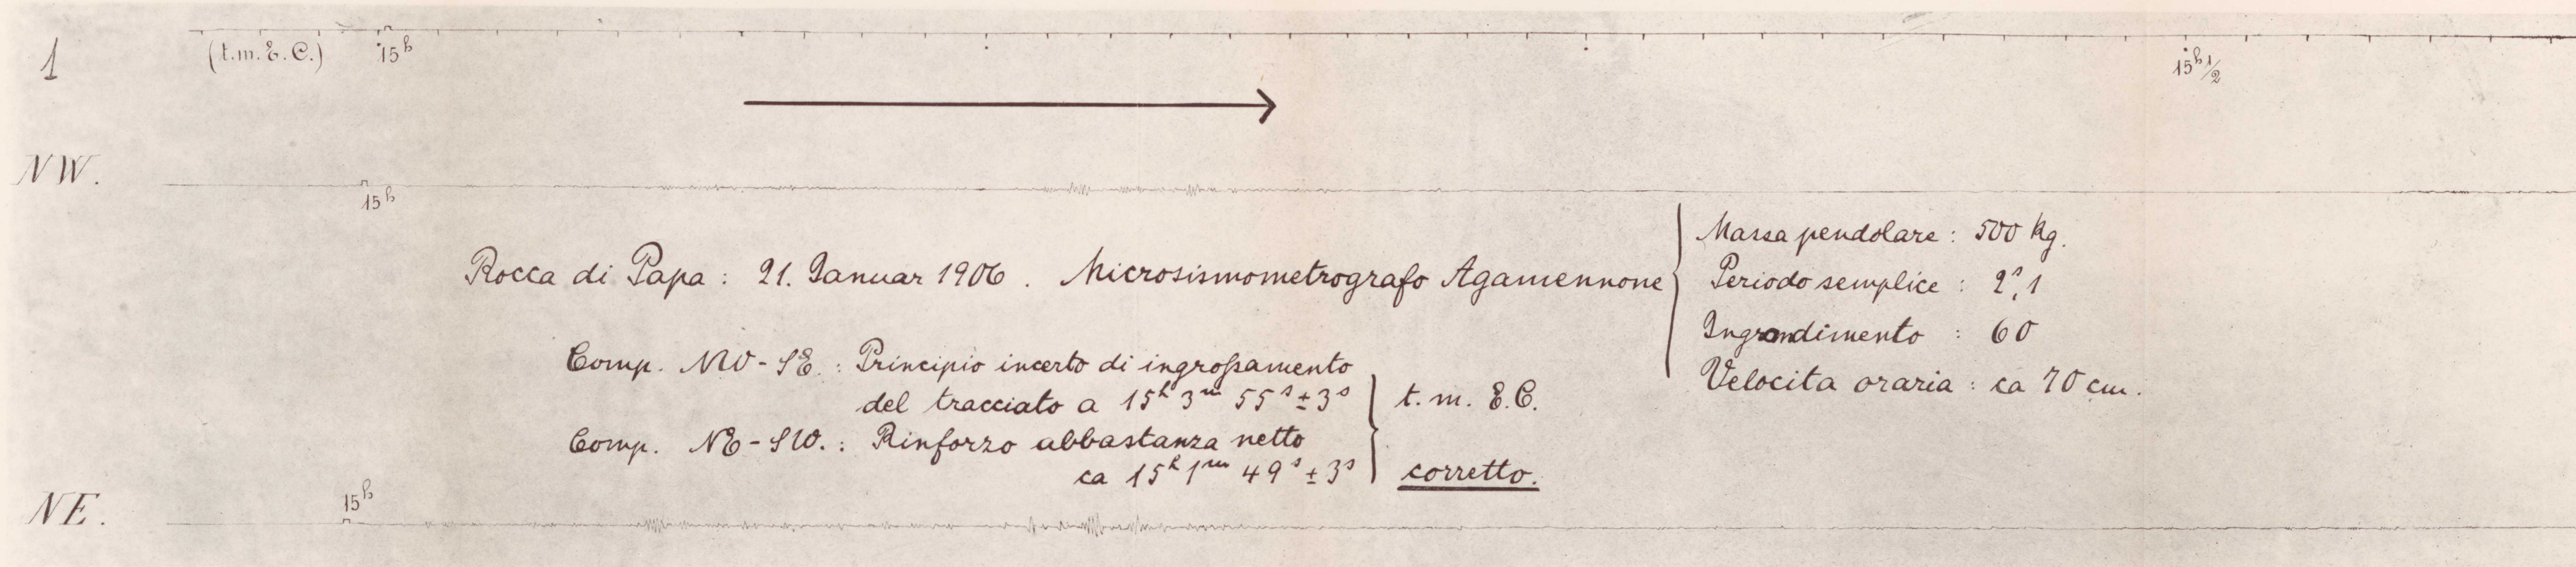 1
(t.m.E.C.) 15h 15h 1/2
NW.
15h
Rocca di Papa : 21. Januar 1906 . Microsismometrografo Agamennone
Massa pendolare : 500 kg.
Periodo semplice : 2s,1
Ingrandimento : 60
Velocita oraria : ca 70 cm.
Comp. NW-SE. : Principio incerto di ingroſsamento
del tracciato a 15h 3m 55s ± 3s
Comp. NE-SW. : Rinforzo abbastanza netto
ca 15h 1m 49s ± 3s
t.m. E.C.
corretto.
NE.
15h